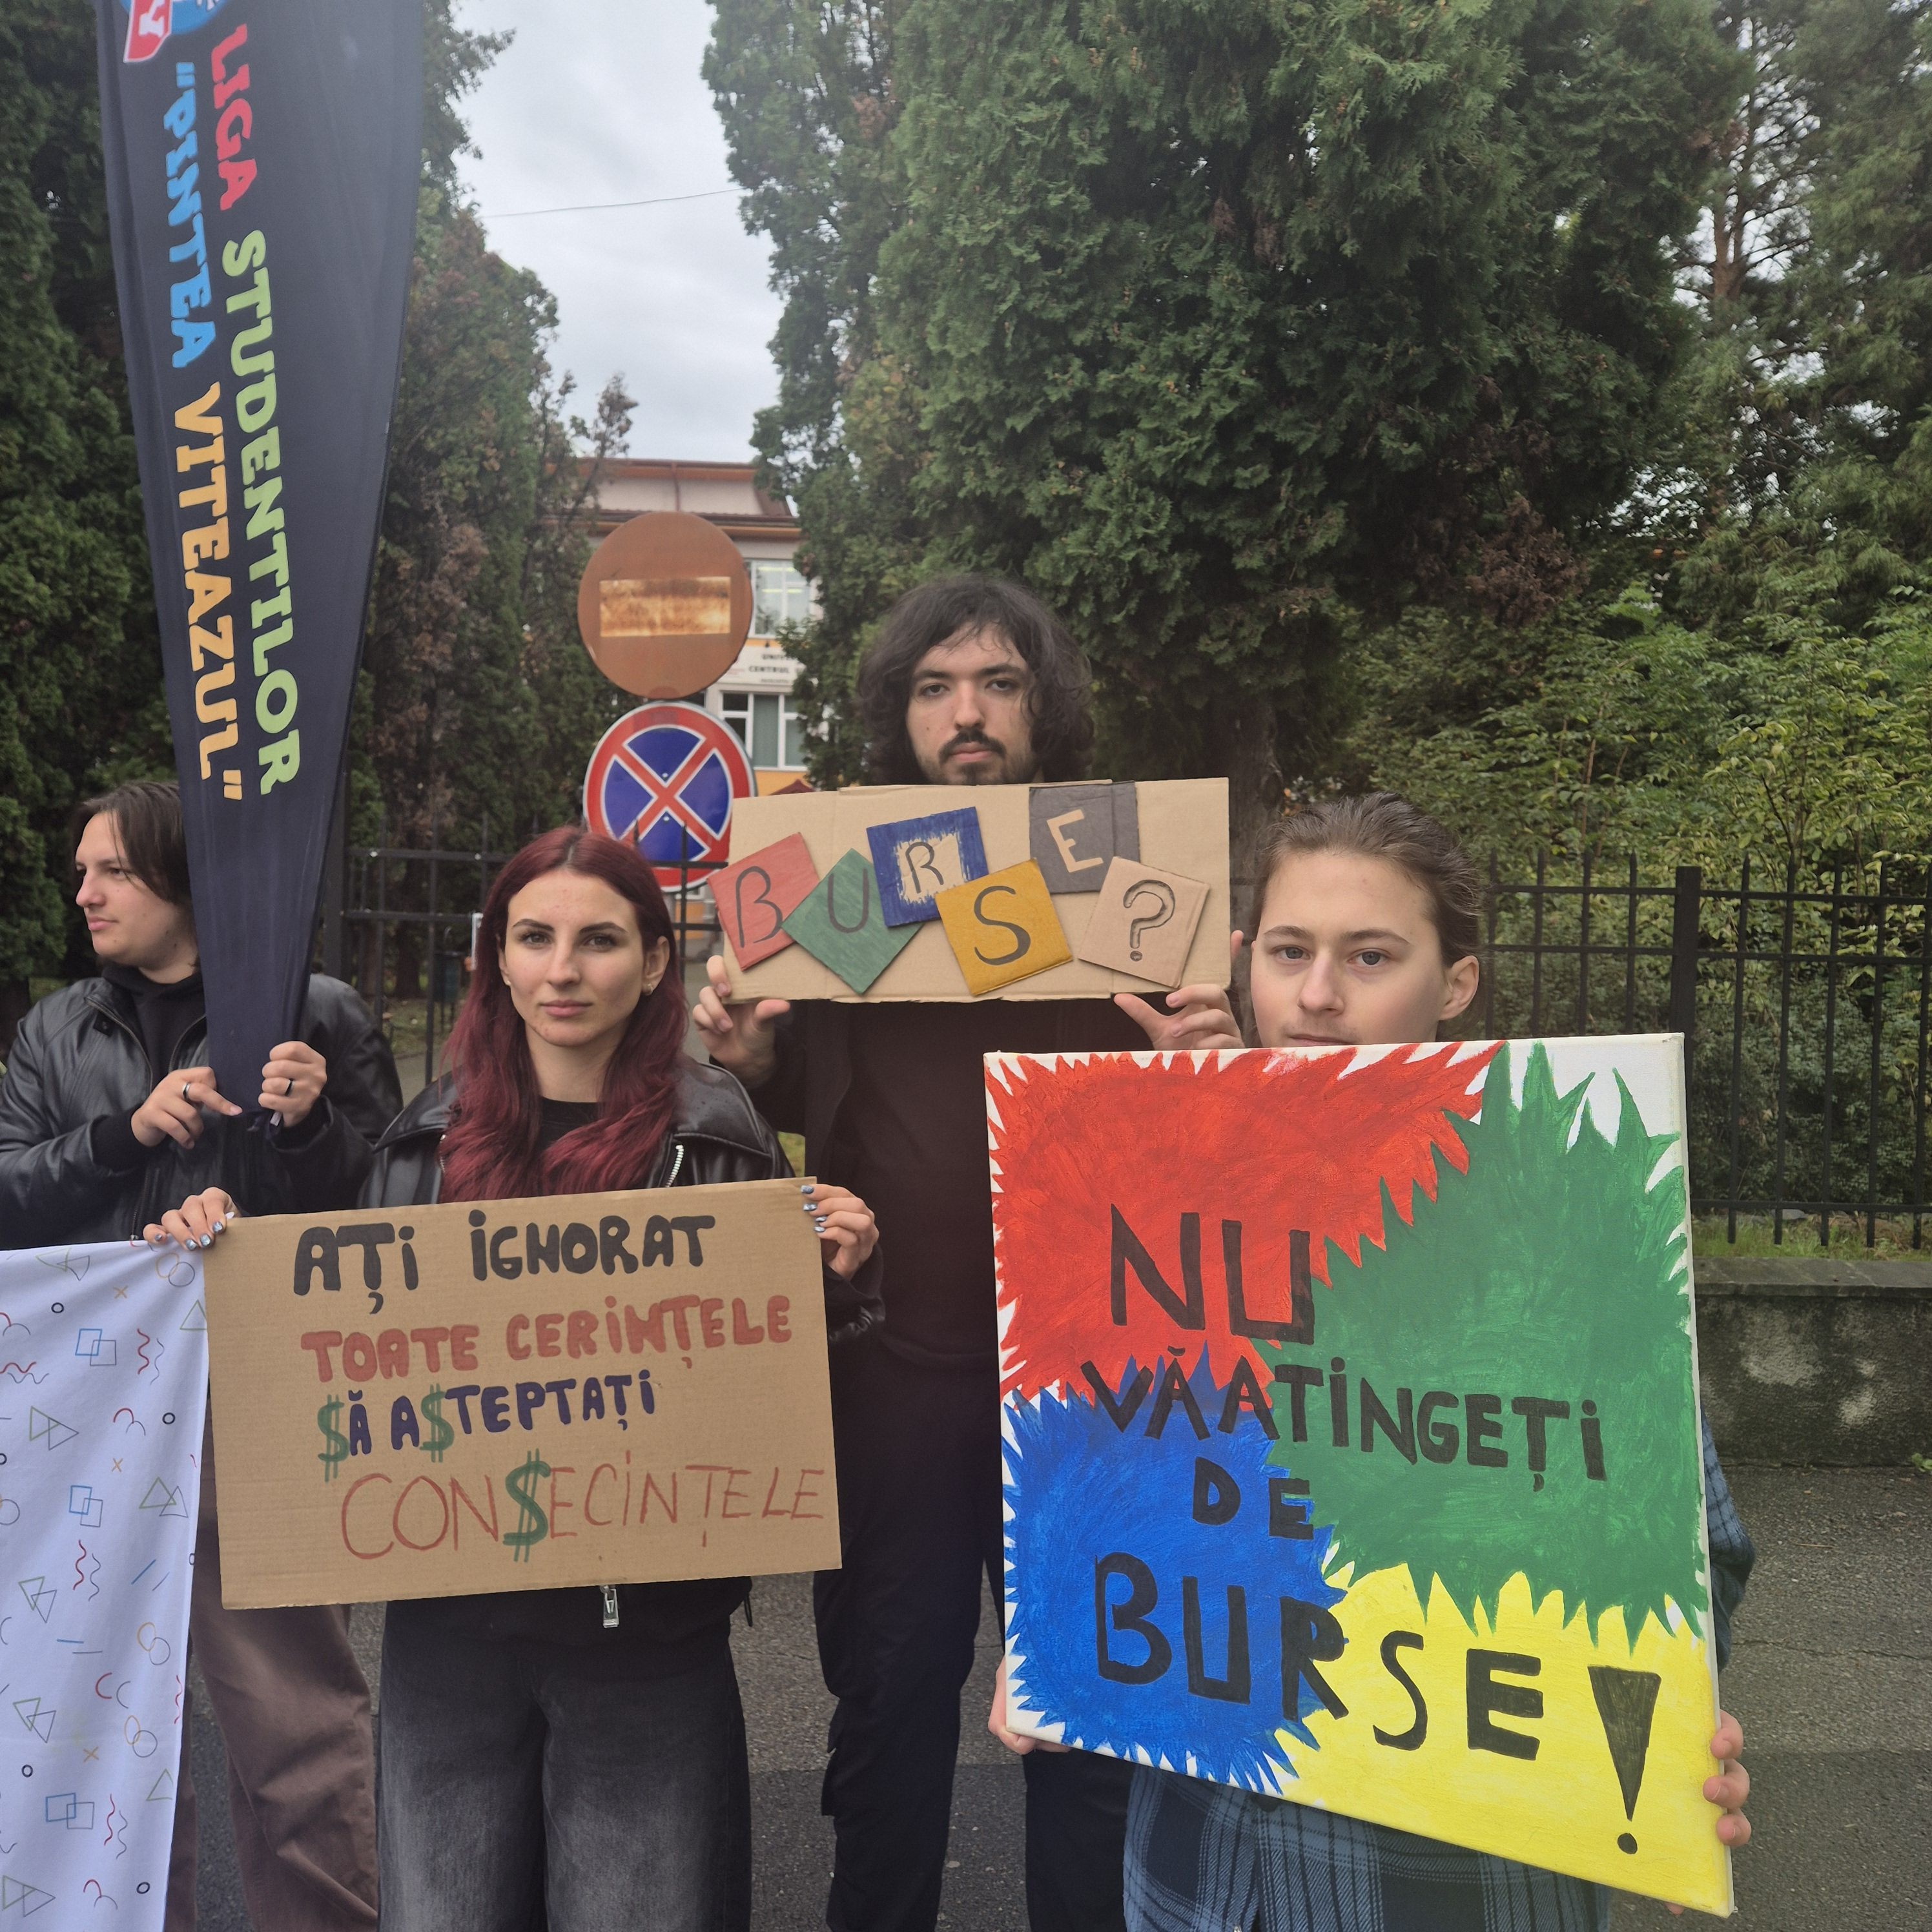 LIGA STUDENTILOR
"PINTEA VITEAZUL"
BURSE?
AȚI IGNORAT
TOATE CERINȚELE
$Ă A$TEPTAȚI
CON$ECINȚELE
NU
VĂ ATINGEȚI
DE
BURSE!